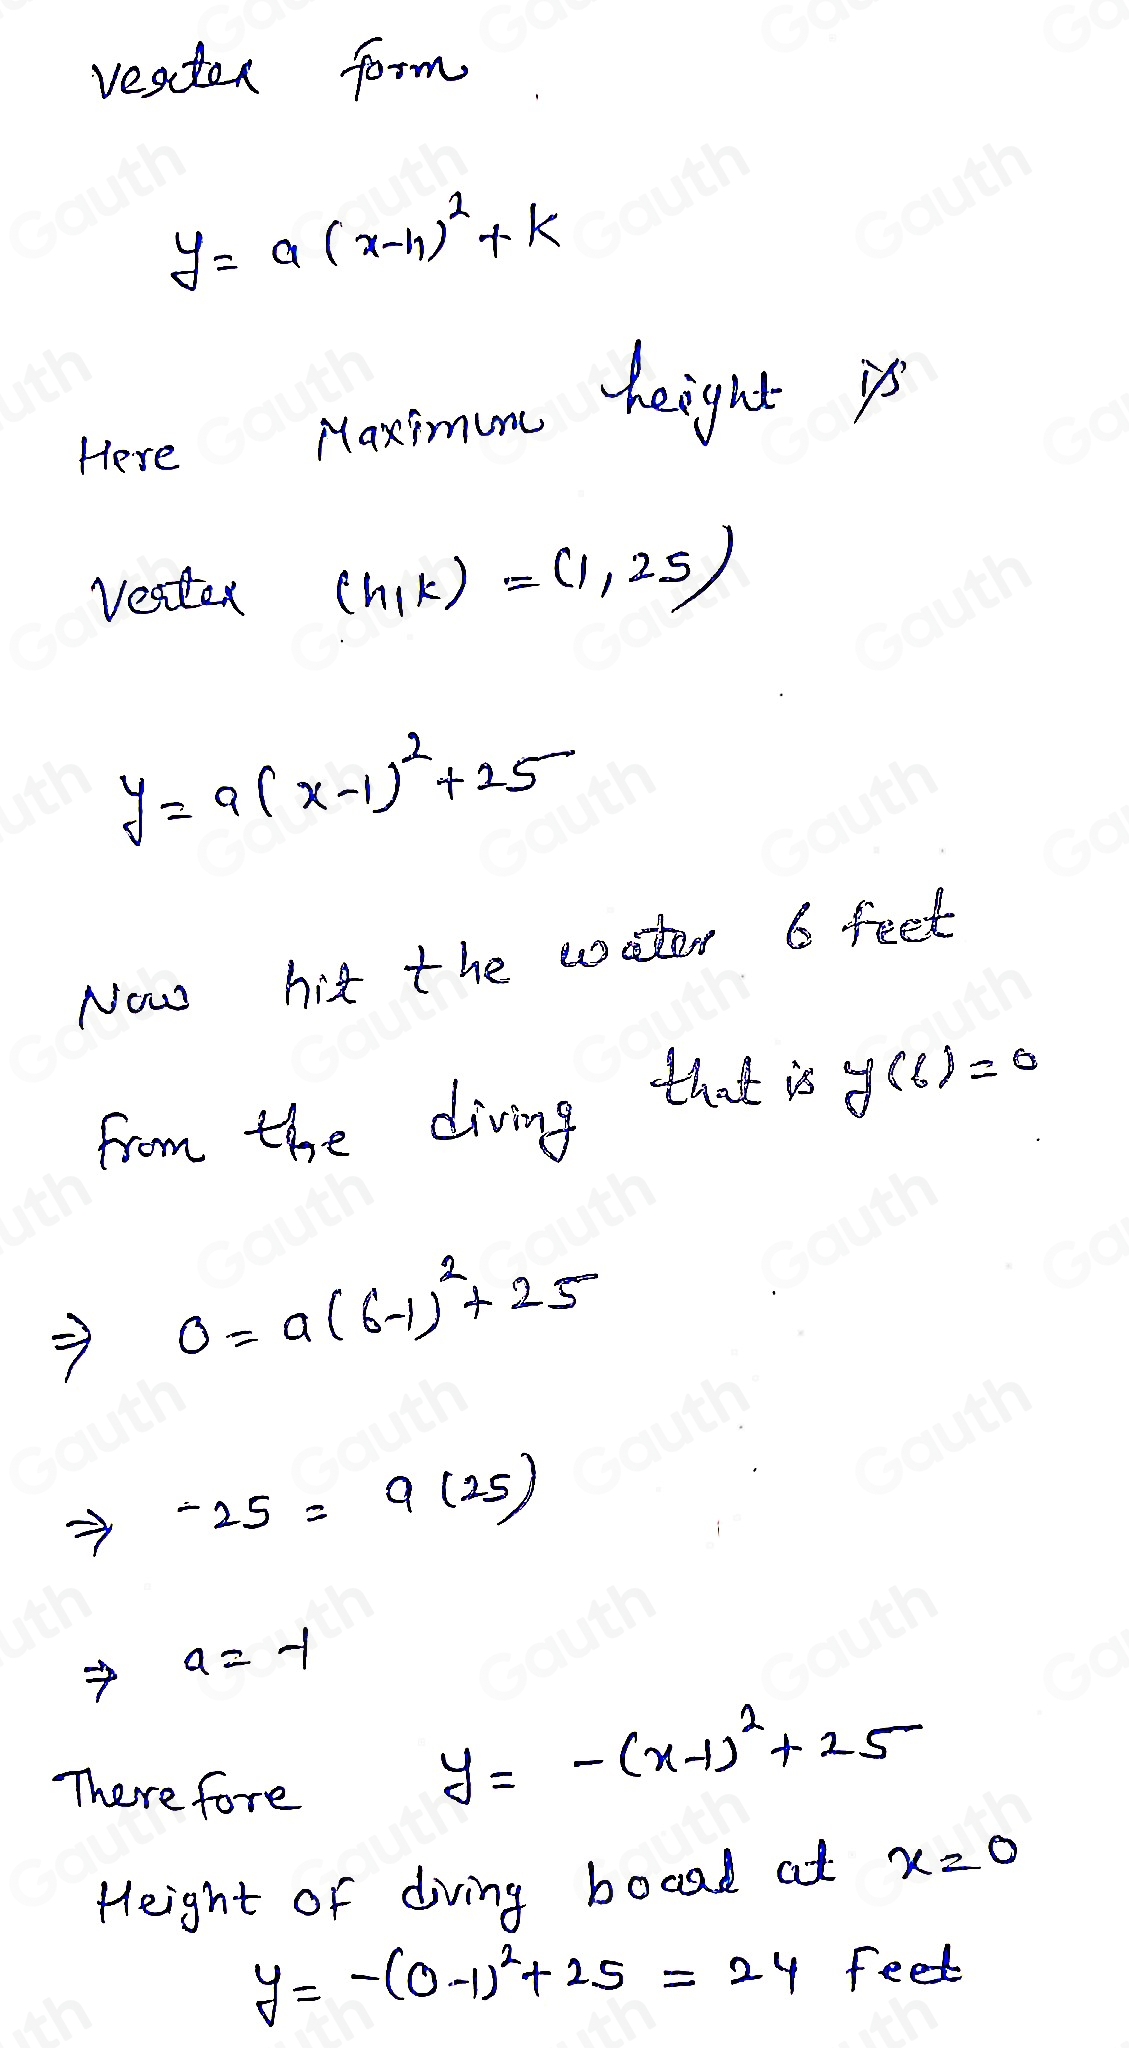 Vertex form
y = a(x-h)² + k
Here Maximum height is
Vertex (h,k) = (1,25)
y = a(x-1)² + 25
Now hit the water 6 feet
from the diving that is y(6)=0
⇒ 0 = a(6-1)² + 25
⇒ -25 = a(25)
⇒ a = -1
Therefore y = -(x-1)² + 25
Height of diving board at x=0
y = -(0-1)² + 25 = 24 feet
Gauth